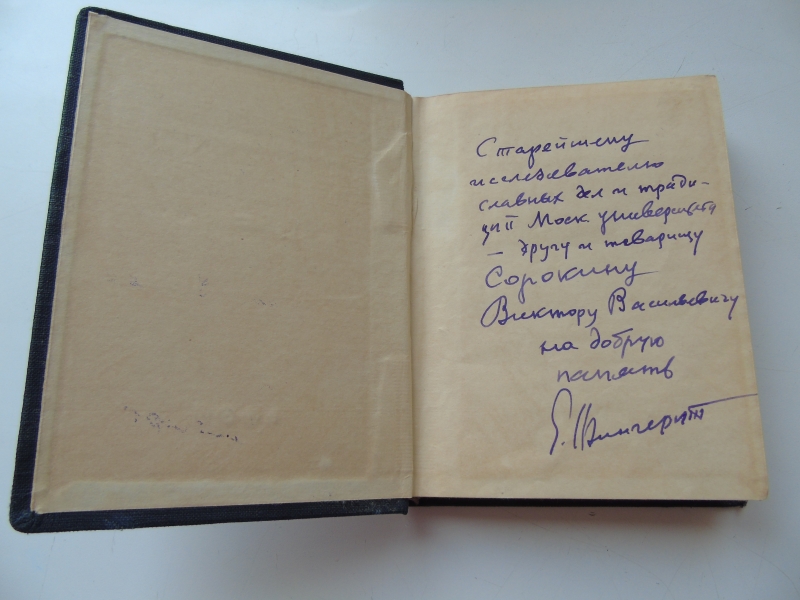 Старейшему
исследователю
славных дел и тради-
ций Моск. университета
– другу и товарищу
Сорокину
Виктору Васильевичу
на добрую
память